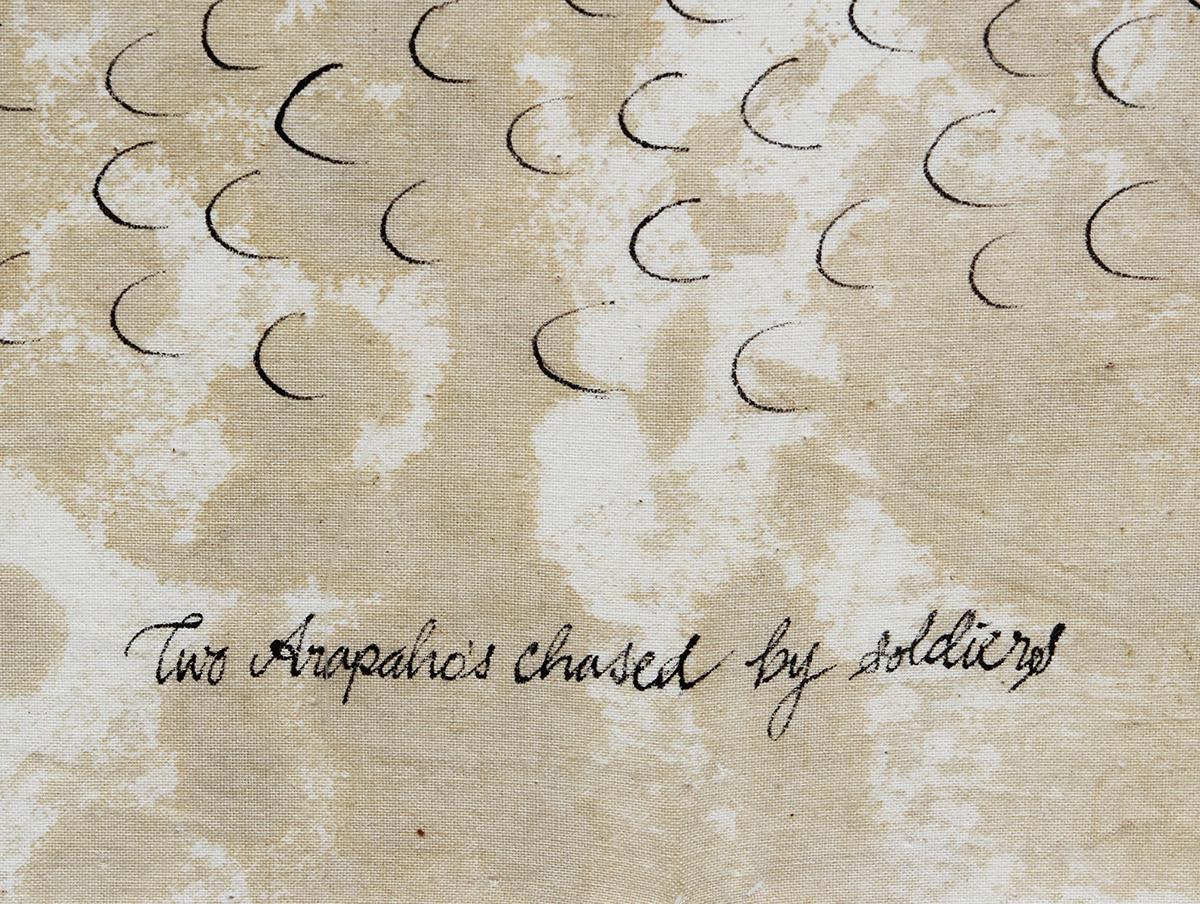 Two Arapaho's chased by soldiers